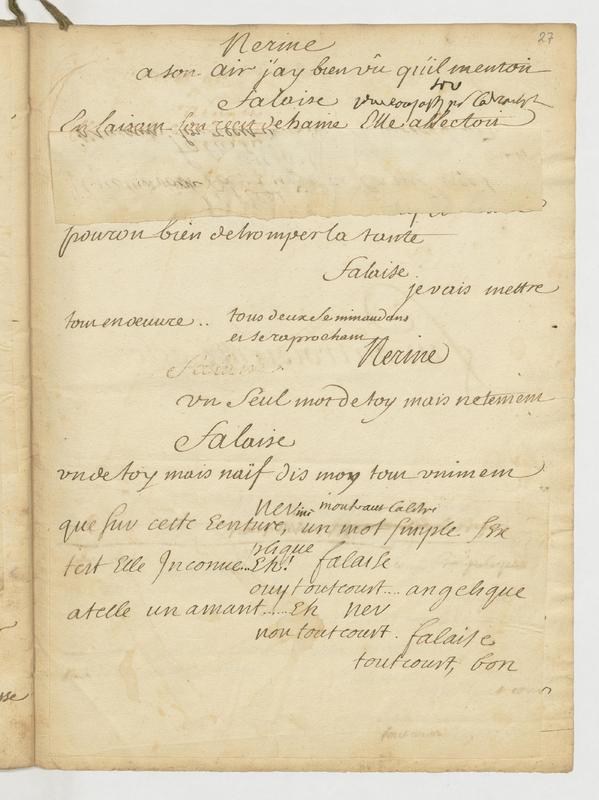 27
Nerine
a son air j'ay bien vû qu'il mentoit
Falaise
En faisant son recit de haine Elle affectoit
pouron bien detromper la tante
Falaise.
je vais mettre
tout en oeuvre .. tous deux se minaudans
et se raprochant
Nerine
un Seul mot de toy mais netement
Falaise
un de toy mais naïf dis moy tout uniment
nerine montrant la lettre
que sur cette Ecriture, un mot simple s'ex
plique
t'est Elle Inconue...Eh! falaise
ouy tout court.... angelique
a telle un amant.....Eh ner
non tout court. falaise
tout court, bon